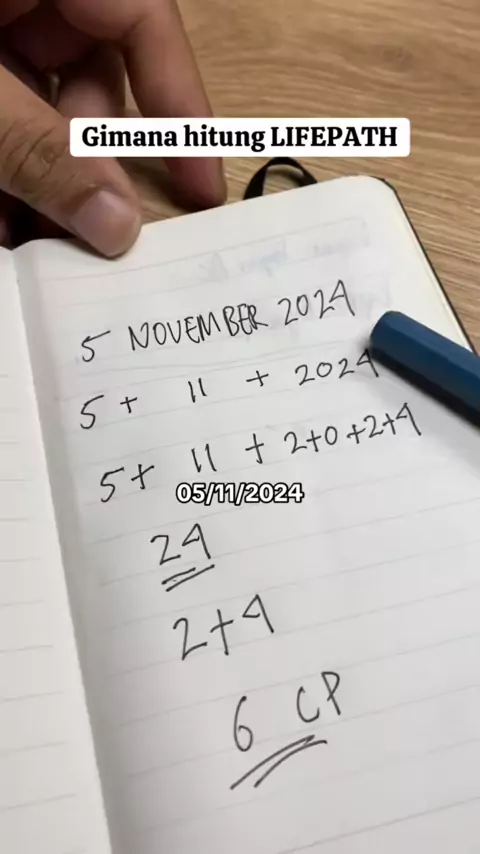 Gimana hitung LIFEPATH
5 NOVEMBER 2024
5 + 11 + 2024
5 + 11 + 2+0+2+4
05/11/2024
24
2+4
6 CP